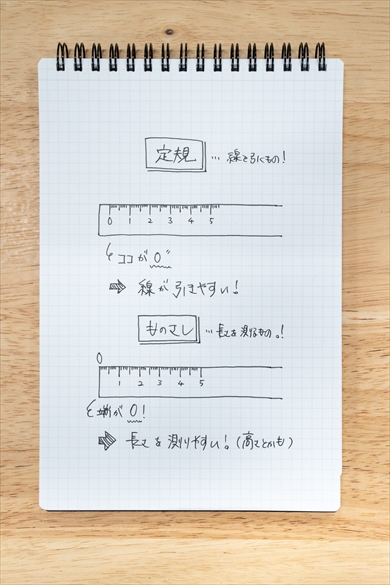 定規 … 線を引くもの!
0 1 2 3 4 5
ココが 0"
⇒ 線が引きやすい!
ものさし … 長さを測るもの。!
0
1 2 3 4 5
端が 0!
⇒ 長さを測りやすい!(高さとかも)